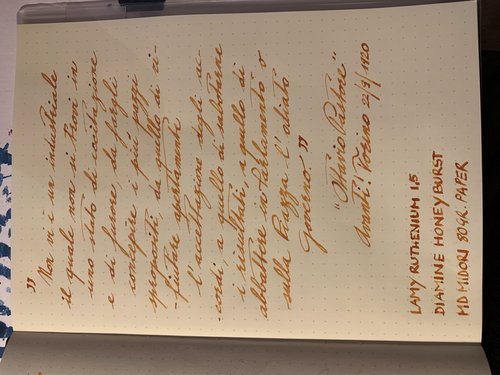 "
Non vi è un industriale
il quale non si trovi in
uno stato di eccitazione
e di furore, da fargli
concepire i più pazzi
spropositi, da quello di ri-
-fiutare apertamente
l'accettazione degli ac-
-cordi, a quello di sabotarne
i risultati, a quello di
abbattere in Parlamento o
sulla Piazza l'odiato
Governo. "
"Ottavio Pastore"
Avanti! Torino 22/9/1920
LAMY RUTHENIUM 1,5
DIAMINE HONEY BURST
MD MIDORI 80GR. PAPER